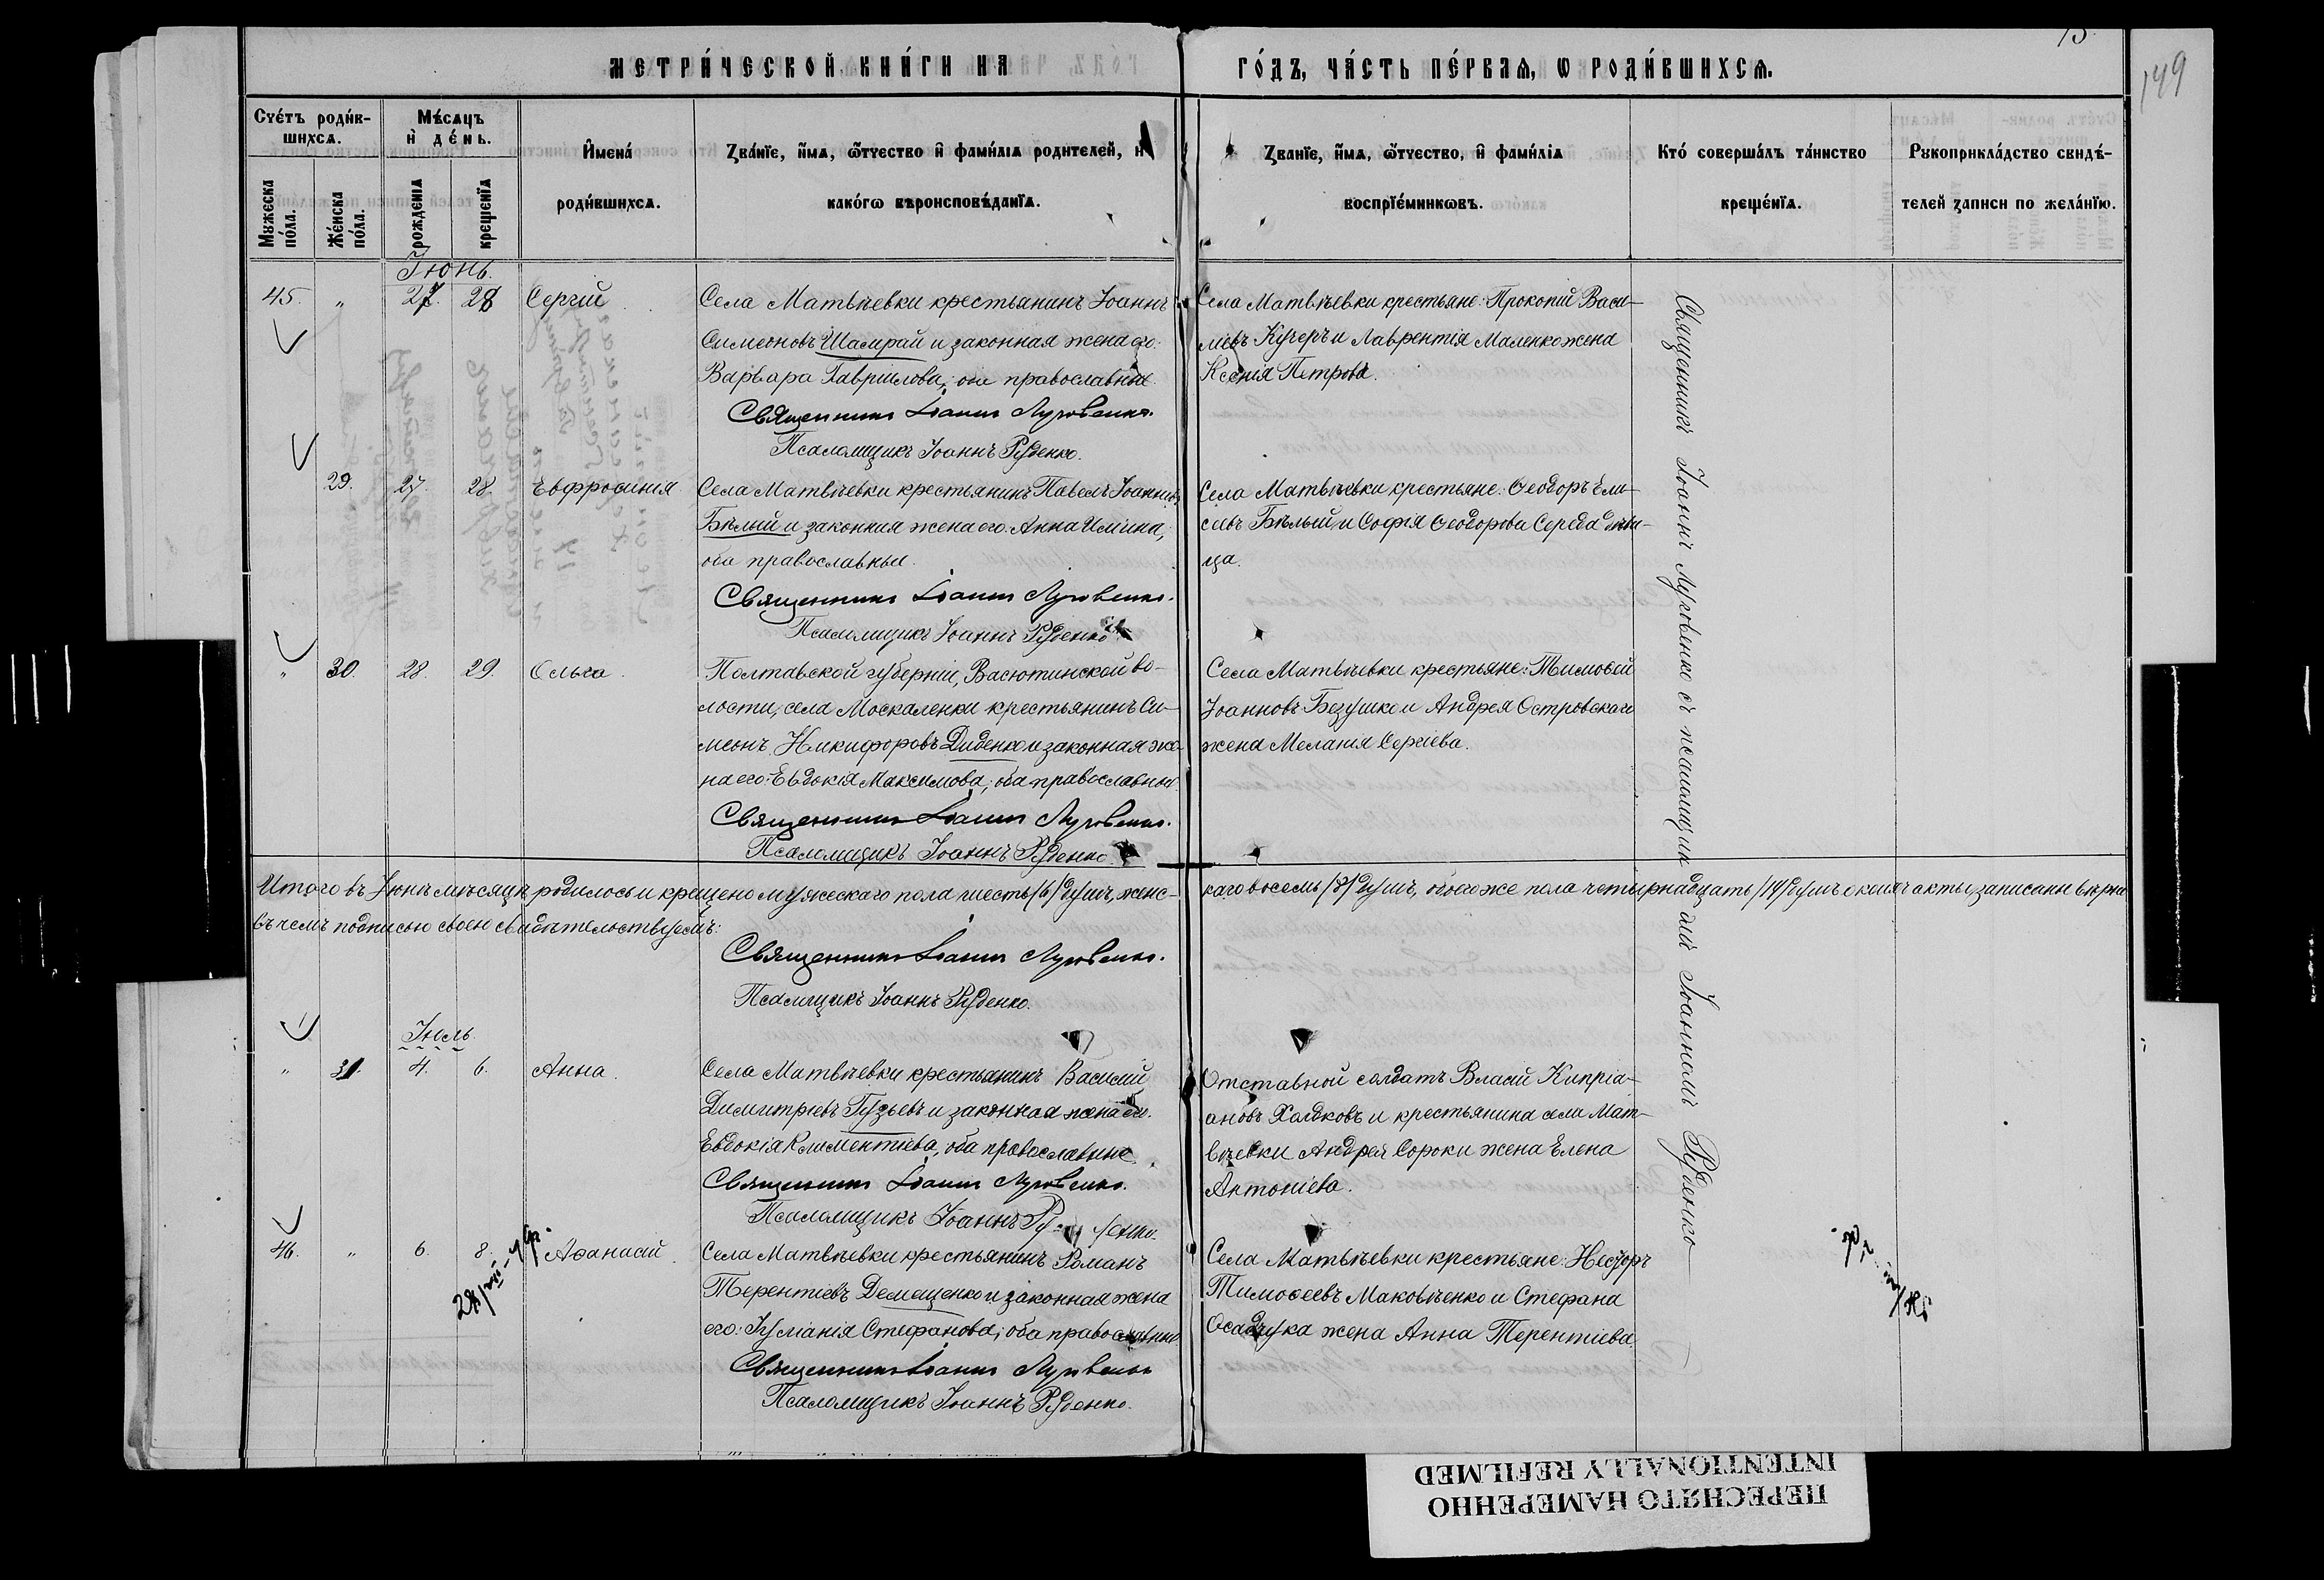 МЕТРИ́ЧЕСКОЙ КНИ́ГИ НА
ГО́ДЪ, ЧА́СТЬ ПЕ́РВАѦ, Ѡ РОДИ́ВШИХСѦ.
149
Счéтъ роди́в-
шихсѧ.
Мѣ́сѧцъ
и҆ де́нь.
И҆мена́
роди́вшихсѧ.
Зва́нїе, и҆́мѧ, ѻ҆́тчество и҆ фами́лїѧ родителей, и
како́гѡ вѣроисповѣ́данїѧ.
Зва́нїе, и҆́мѧ, ѻ҆́тчество, и҆ фами́лїѧ
воспрїе́мникѡвъ.
Кто́ соверша́лъ та́инство
креще́нїѧ.
Рꙋкоприкла́дство свидѣ́-
телей записи по жела́нїю.
Мꙋжеска
по́ла.
Же́нска
по́ла.
рожденїѧ
крещенїѧ
Іюнь.
45. " 27. 28 Сергій
Села Матвѣевки крестьянинъ Іоаннъ
Симеоновъ Шамрай и законная жена его:
Варвара Гавріилова, оба православные.
Священникъ Іоаннъ Луговенко.
Псаломщикъ Іоаннъ Руденко.
Села Матвѣевки крестьяне: Прокопій Васи-
ліевъ Кучеръ и Лаврентія Маленко жена
Ксенія Петрова.
29. 27. 28. Евфросинія
Села Матвѣевки крестьянинъ Павелъ Іоанновъ
Бѣлый и законная жена его: Анна Иліина,
оба православные.
Священникъ Іоаннъ Луговенко.
Псаломщикъ Іоаннъ Руденко
Села Матвѣевки крестьяне: Ѳеодоръ Ели-
сеевъ Бѣлый и Софія Ѳеодорова Середа дѣви-
ца.
" 30. 28. 29. Ольга.
Полтавской губерніи, Васютинской во-
лости, села Москаленки крестьянинъ Си-
меонъ Никифоровъ Диденко и законная же-
на его: Евдокія Максимова, оба православные.
Священникъ Іоаннъ Луговенко.
Псаломщикъ Іоаннъ Руденко
Села Матвѣевки крестьяне: Тимоѳей
Іоанновъ Безушко и Андрея Островскаго
жена Меланія Сергіева.
Итого въ Іюнѣ мѣсяцѣ родилось и крещено мужескаго пола шесть /6/ душъ, женс-
каго восемь /8/ душъ, обоего же пола четырнадцать /14/ душъ о коихъ акты записаны вѣрно
въ чемъ подписью своею свидѣтельствуемъ:
Священникъ Іоаннъ Луговенко.
Псаломщикъ Іоаннъ Руденко.
Іюль.
" 31. 4. 6. Анна.
Села Матвѣевки крестьянинъ Василій
Димитріевъ Гузьевъ и законная жена его:
Евдокія Климентіева, оба православные.
Священникъ Іоаннъ Луговенко.
Псаломщикъ Іоаннъ Руденко.
Отставной солдатъ Власій Кипріа-
новъ Халдковъ и крестьянина села Мат-
вѣевки Андрея Сороки жена Елена
Антоніева.
46. " 6. 8. Аѳанасій.
Села Матвѣевки крестьянинъ Романъ
Терентіевъ Демещенко и законная жена
его: Іуліанія Стефанова; оба православные
Священникъ Іоаннъ Луговенко
Псаломщикъ Іоаннъ Руденко.
Села Матвѣевки крестьяне: Несторъ
Тимоѳеевъ Маковѣенко и Стефана
Осадчука жена Анна Терентіева.
Священникъ Іоаннъ Луговенко съ псаломщикомъ Іоанномъ Руденко
ПЕРЕСНЯТО НАМЕРЕННО
INTENTIONALLY REFILMED